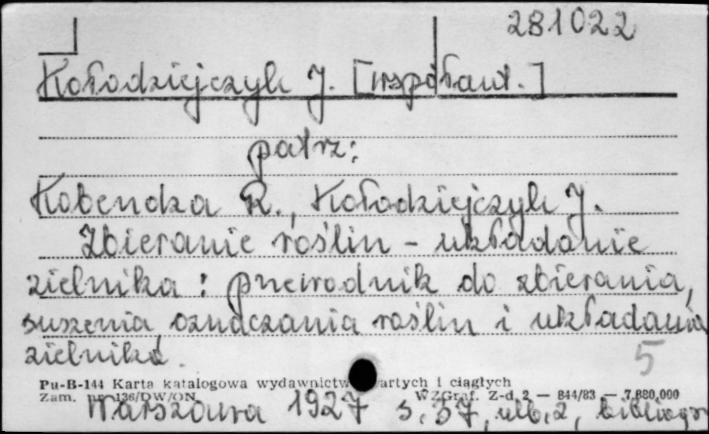 281022
Kołodziejczyk J. [współaut.]
patrz:
Kobendza R., Kołodziejczyk J.
Zbieranie roślin - układanie
zielnika : przewodnik do zbierania,
suszenia oznaczania roślin i układania
zielnika.
5
Pu-B-144 Karta katalogowa wydawnictw artych i ciągłych
Zam. nr 136/DW/ON WZGraf. Z-d 2 — 844/83 — 7.880.000
Warszawa 1927 s. 37, nlb. 2, bibliogr